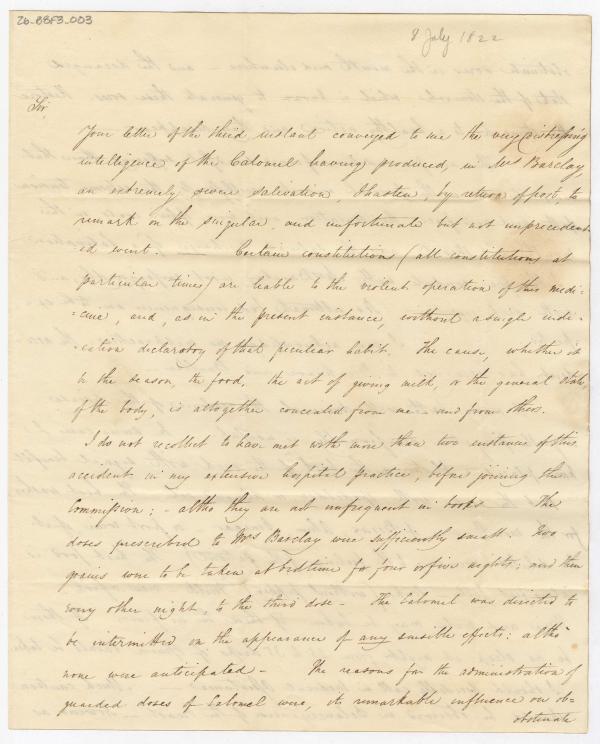 26-88F3_003
8 July 1822
Sir
Your letter of the third instant conveyed to me the very distressing
intelligence of the Calomel having produced, in Mrs Barclay,
an extremely severe salivation, I hasten, by return of post, to
remark on the singular, and unfortunate but not unprecedent-
ed event. — Certain constitutions (all constitutions at
particular times) are liable to the violent operation of this medi=
=cine, and, as in the present instance, without a single indi-
-cation declaratory of that peculiar habit. The cause, whether it
be the season, the food, the act of giving milk, or the general state,
of the body, is altogether concealed from me — and from others.
I do not recollect to have met with more than two instances of this
accident in my extensive hospital practice, before joining the
Commission; – altho they are not unfrequent in books — The
doses prescribed to Mrs Barclay were sufficiently small: Two
grains were to be taken at bedtime for four or five nights; and then
every other night, to the third dose – The Calomel was directed to
be intermitted on the appearance of any sensible effects: altho'
none were anticipated – The reasons for the administration of
guarded doses of Calomel were, its remarkable influence on ob-
obstinate